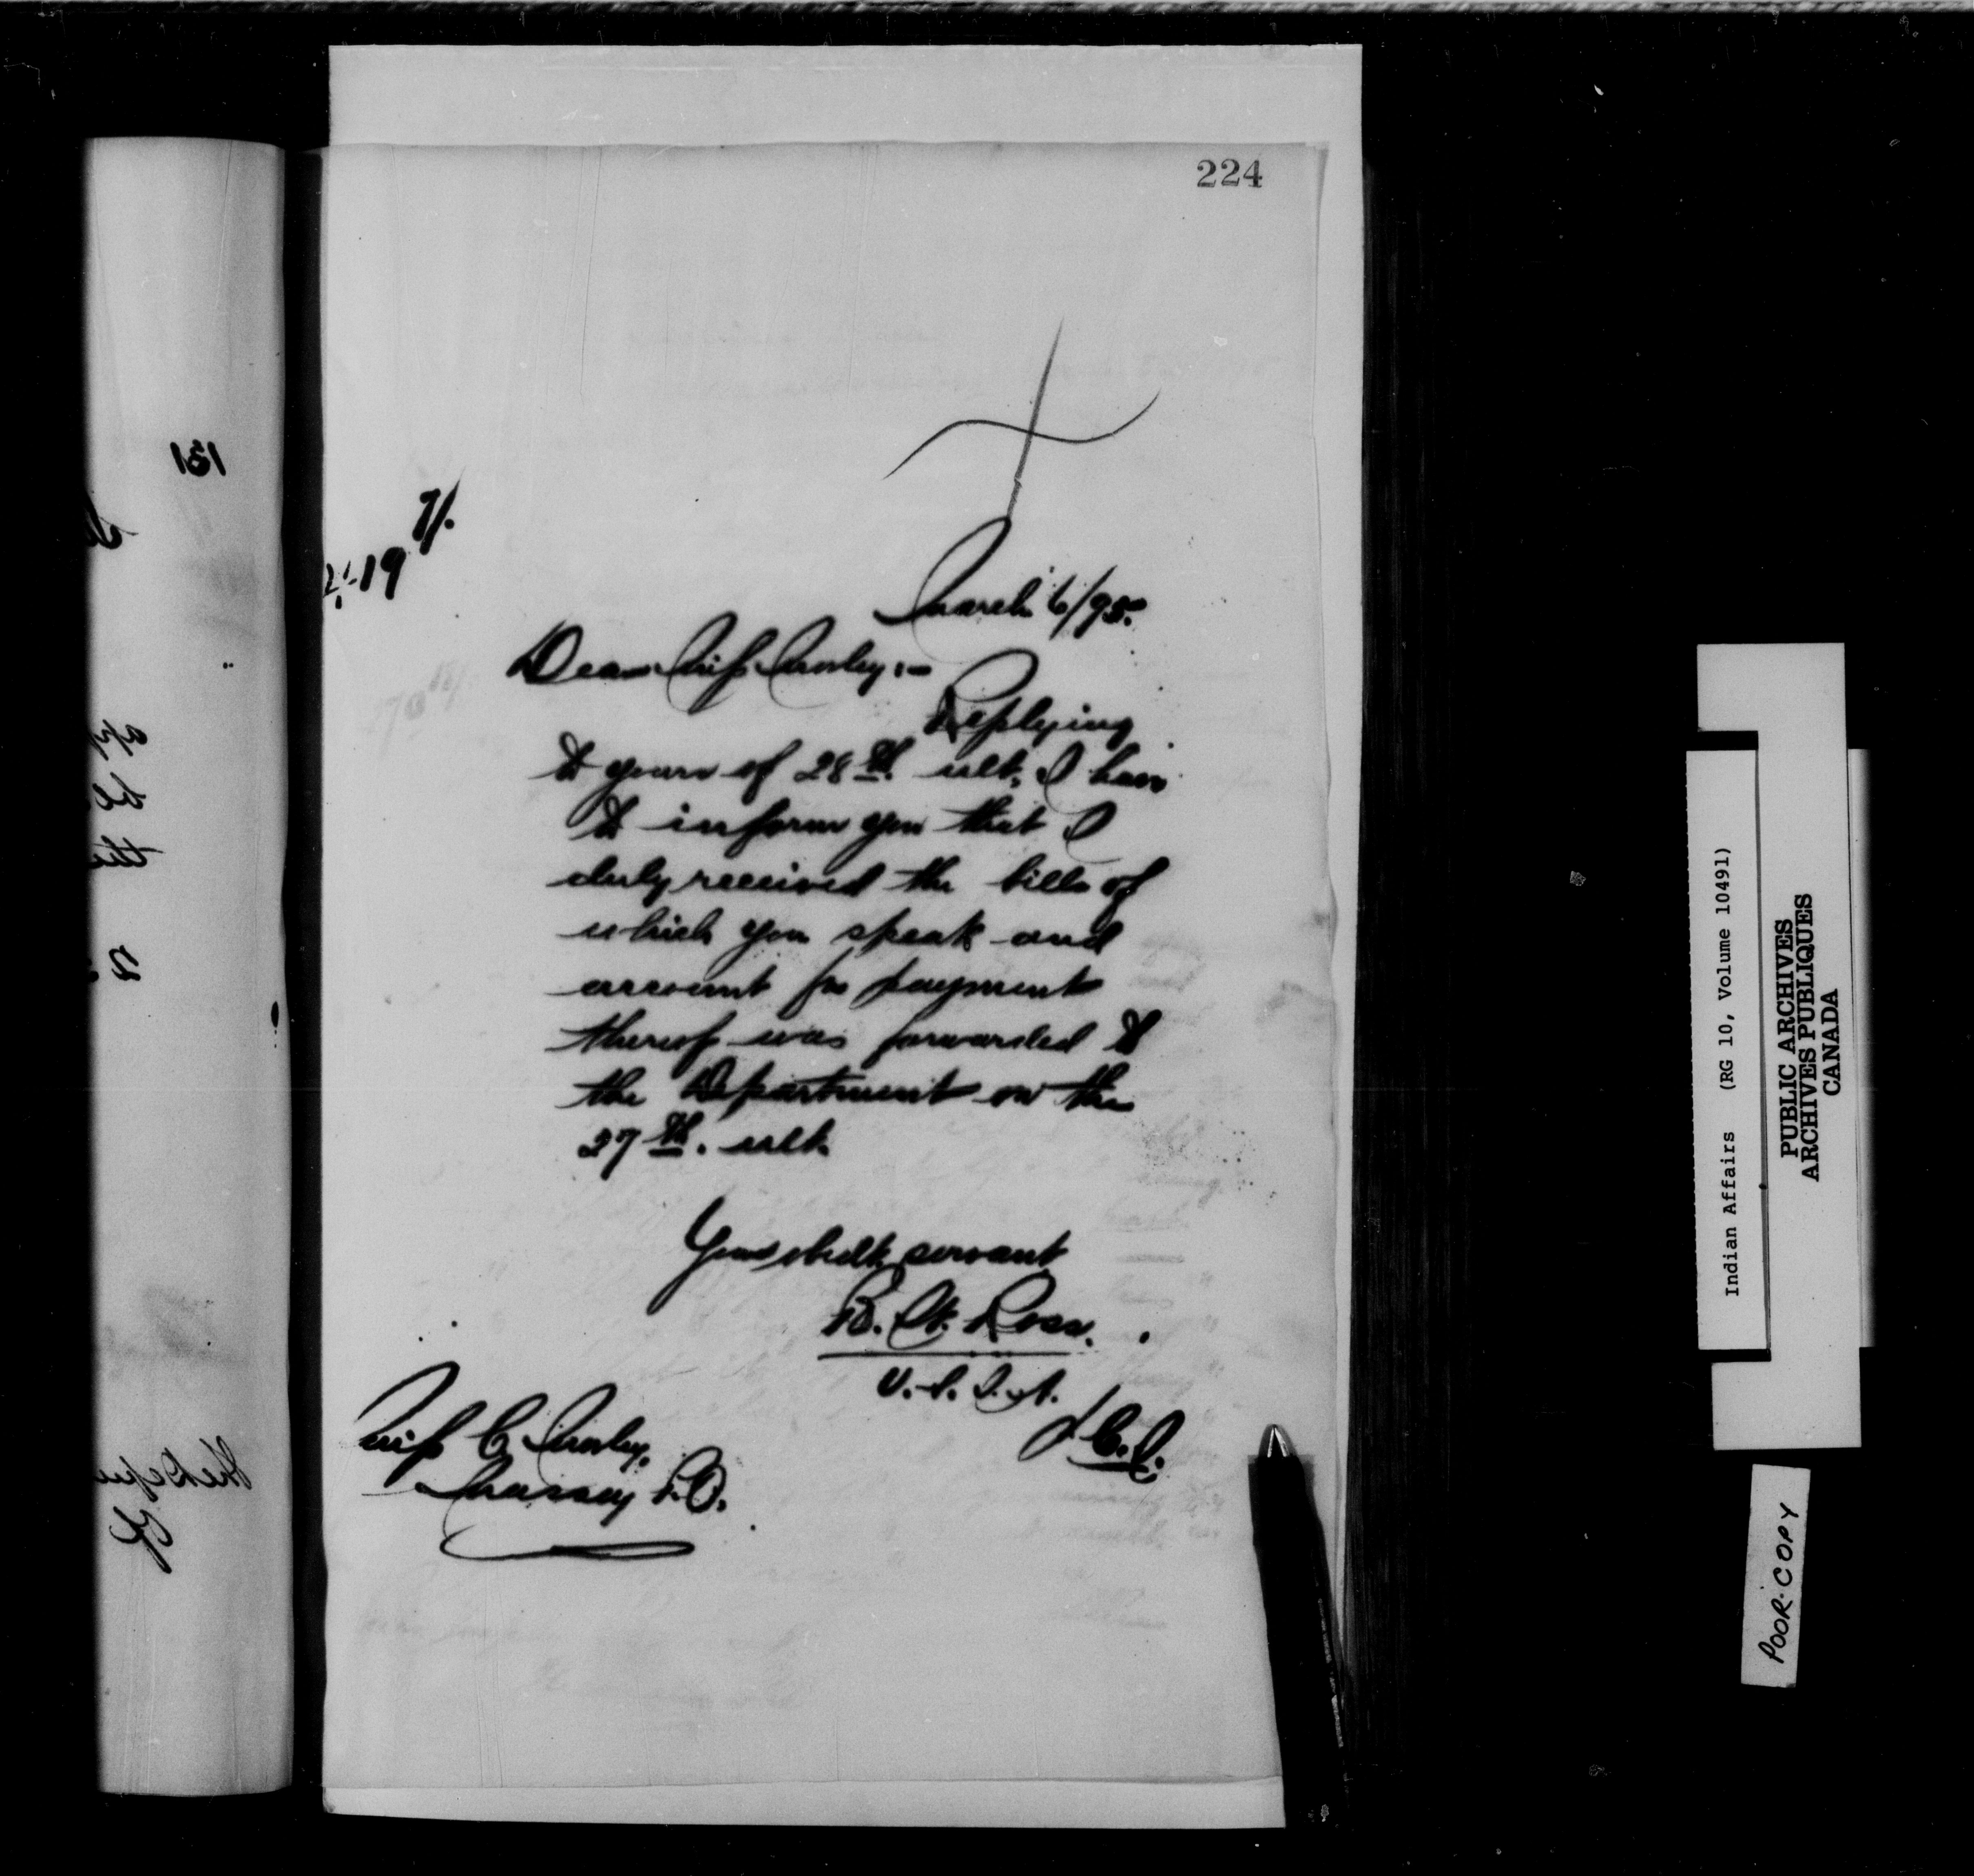 224
7/.
19
March 6/95.
Dear Miss Morley:-
Replying
to yours of 28th. ult. I have
to inform you that I
duly received the bills of
which you speak and
account for payment
thereof was forwarded to
the Department on the
27th. ult.
Your obedt. servant
B. W. Ross.
V. S. I. A.
Miss C. Morley.
Massey P.O.
131
Indian Affairs (RG 10, Volume 10491)
PUBLIC ARCHIVES
ARCHIVES PUBLIQUES
CANADA
POOR COPY